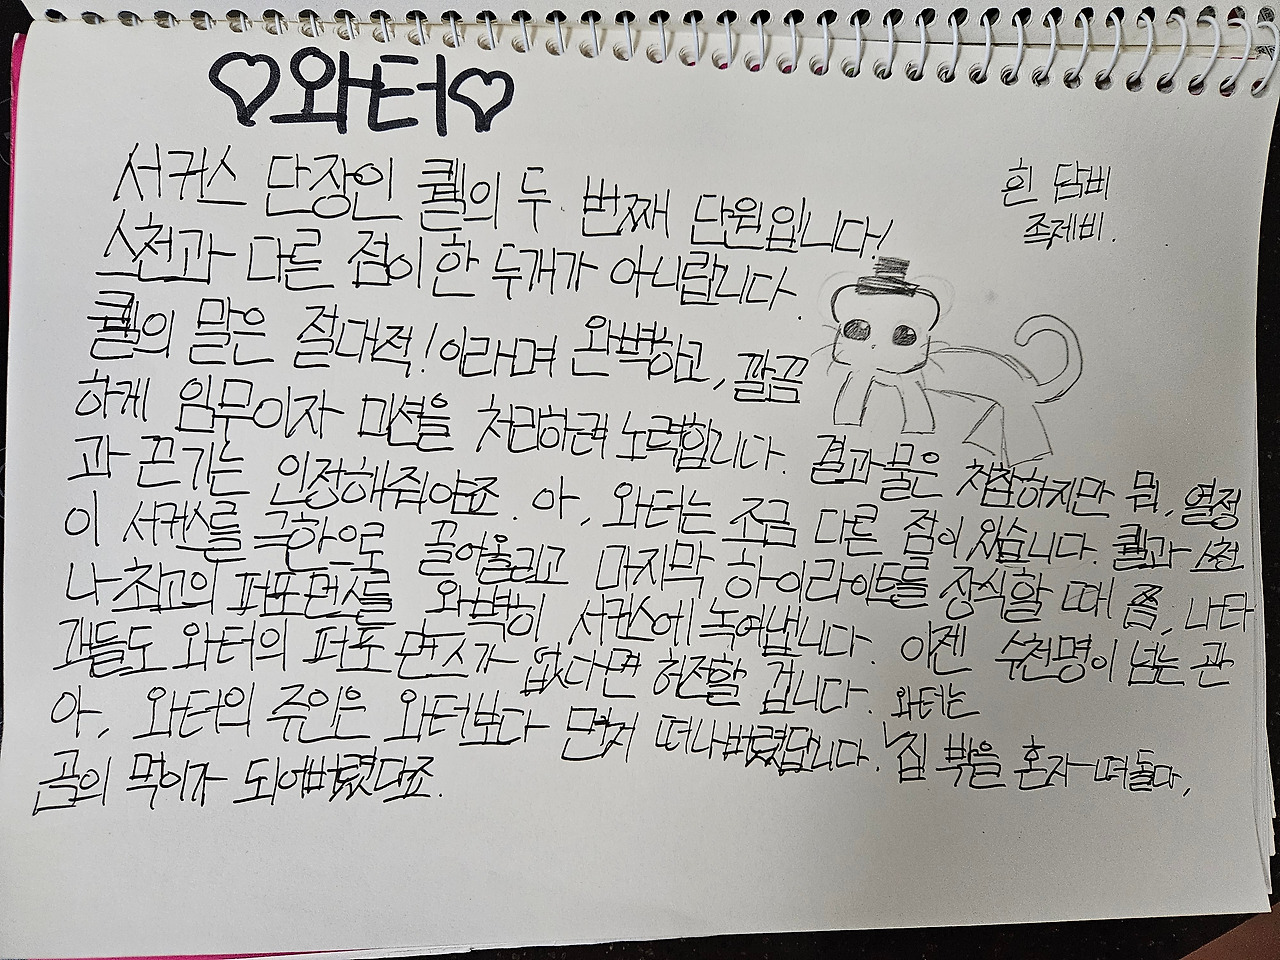 ♡와터♡
흰 담비
족제비.
서커스 단장인 퀠의 두 번째 단원입니다!
스천과 다른 점이 한 두개가 아니랍니다.
퀠의 말은 절대적! 이라며 완벽하고, 깔끔
하게 임무이자 미션을 처리하려 노력합니다. 결과물은 처참하지만 뭐, 열정
과 끈기는 인정해줘야죠. 아, 와터는 조금 다른 점이 있습니다. 퀠과 스천
이 서커스를 극한으로 끌어올리고 마지막 하이라이트를 장식할 때 쯤, 나타
나 최고의 퍼포먼스를 완벽히 서커스에 녹여냅니다. 이젠 수천명이 넘는 관
객들도 와터의 퍼포먼스가 없다면 허전할 겁니다.
아, 와터의 주인은 와터보다 먼저 떠나버렸답니다. 와터는 집 밖을 혼자 떠돌다,
곰의 먹이가 되어버렸다죠.